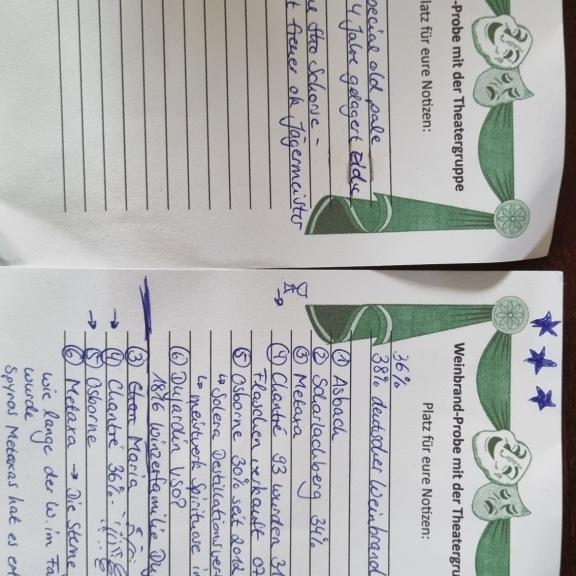 -Probe mit der Theatergruppe
latz für eure Notizen:
pecial old pale
4 Jahre gelagert
Weinbrand-Probe mit der Theatergru
Platz für eure Notizen:
36%
38% deutscher Weinbrand
① Asbach
② Scharlachberg 34%
③ Metaxa
④ Chantré 93 wurden 31
Flaschen verkauft 07
⑤ Osborne 30% seit 2012
↳ Solera Destillationsver
↳ meistverk Spirituose i
⑥ Dujardin VSOP
1876 Winzerfamilie Du
③ Maria
→ ④ Chantré 36% -
→ ⑤ Osborne
⑥ Metaxa → Die Sterne
wie lange der W. im Fa
wurde
Spyros Metaxas hat es er